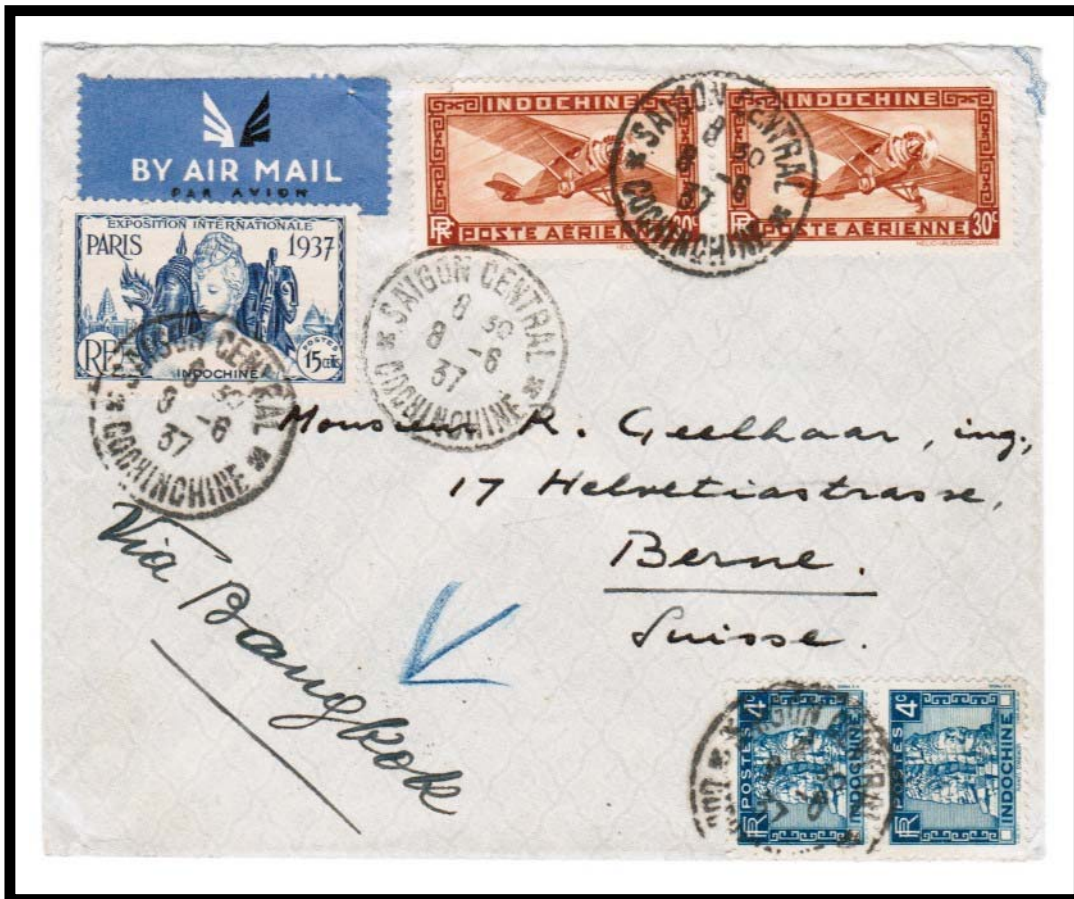 BY AIR MAIL
PAR AVION
INDOCHINE
RF POSTE AÉRIENNE 30c
INDOCHINE
RF POSTE AÉRIENNE 30c
SAIGON CENTRAL
8 30
8 -6
37
* COCHINCHINE *
EXPOSITION INTERNATIONALE
PARIS 1937
RF
POSTES
15 cents
INDOCHINE
SAIGON CENTRAL
8 30
8 -6
37
* COCHINCHINE *
SAIGON CENTRAL
8 30
8 -6
37
* COCHINCHINE *
Monsieur R. Geelhaar, ing.,
17 Helvetiastrasse,
Berne.
Suisse.
Via Bangkok
RF POSTES 4c
INDOCHINE
RF POSTES 4c
INDOCHINE